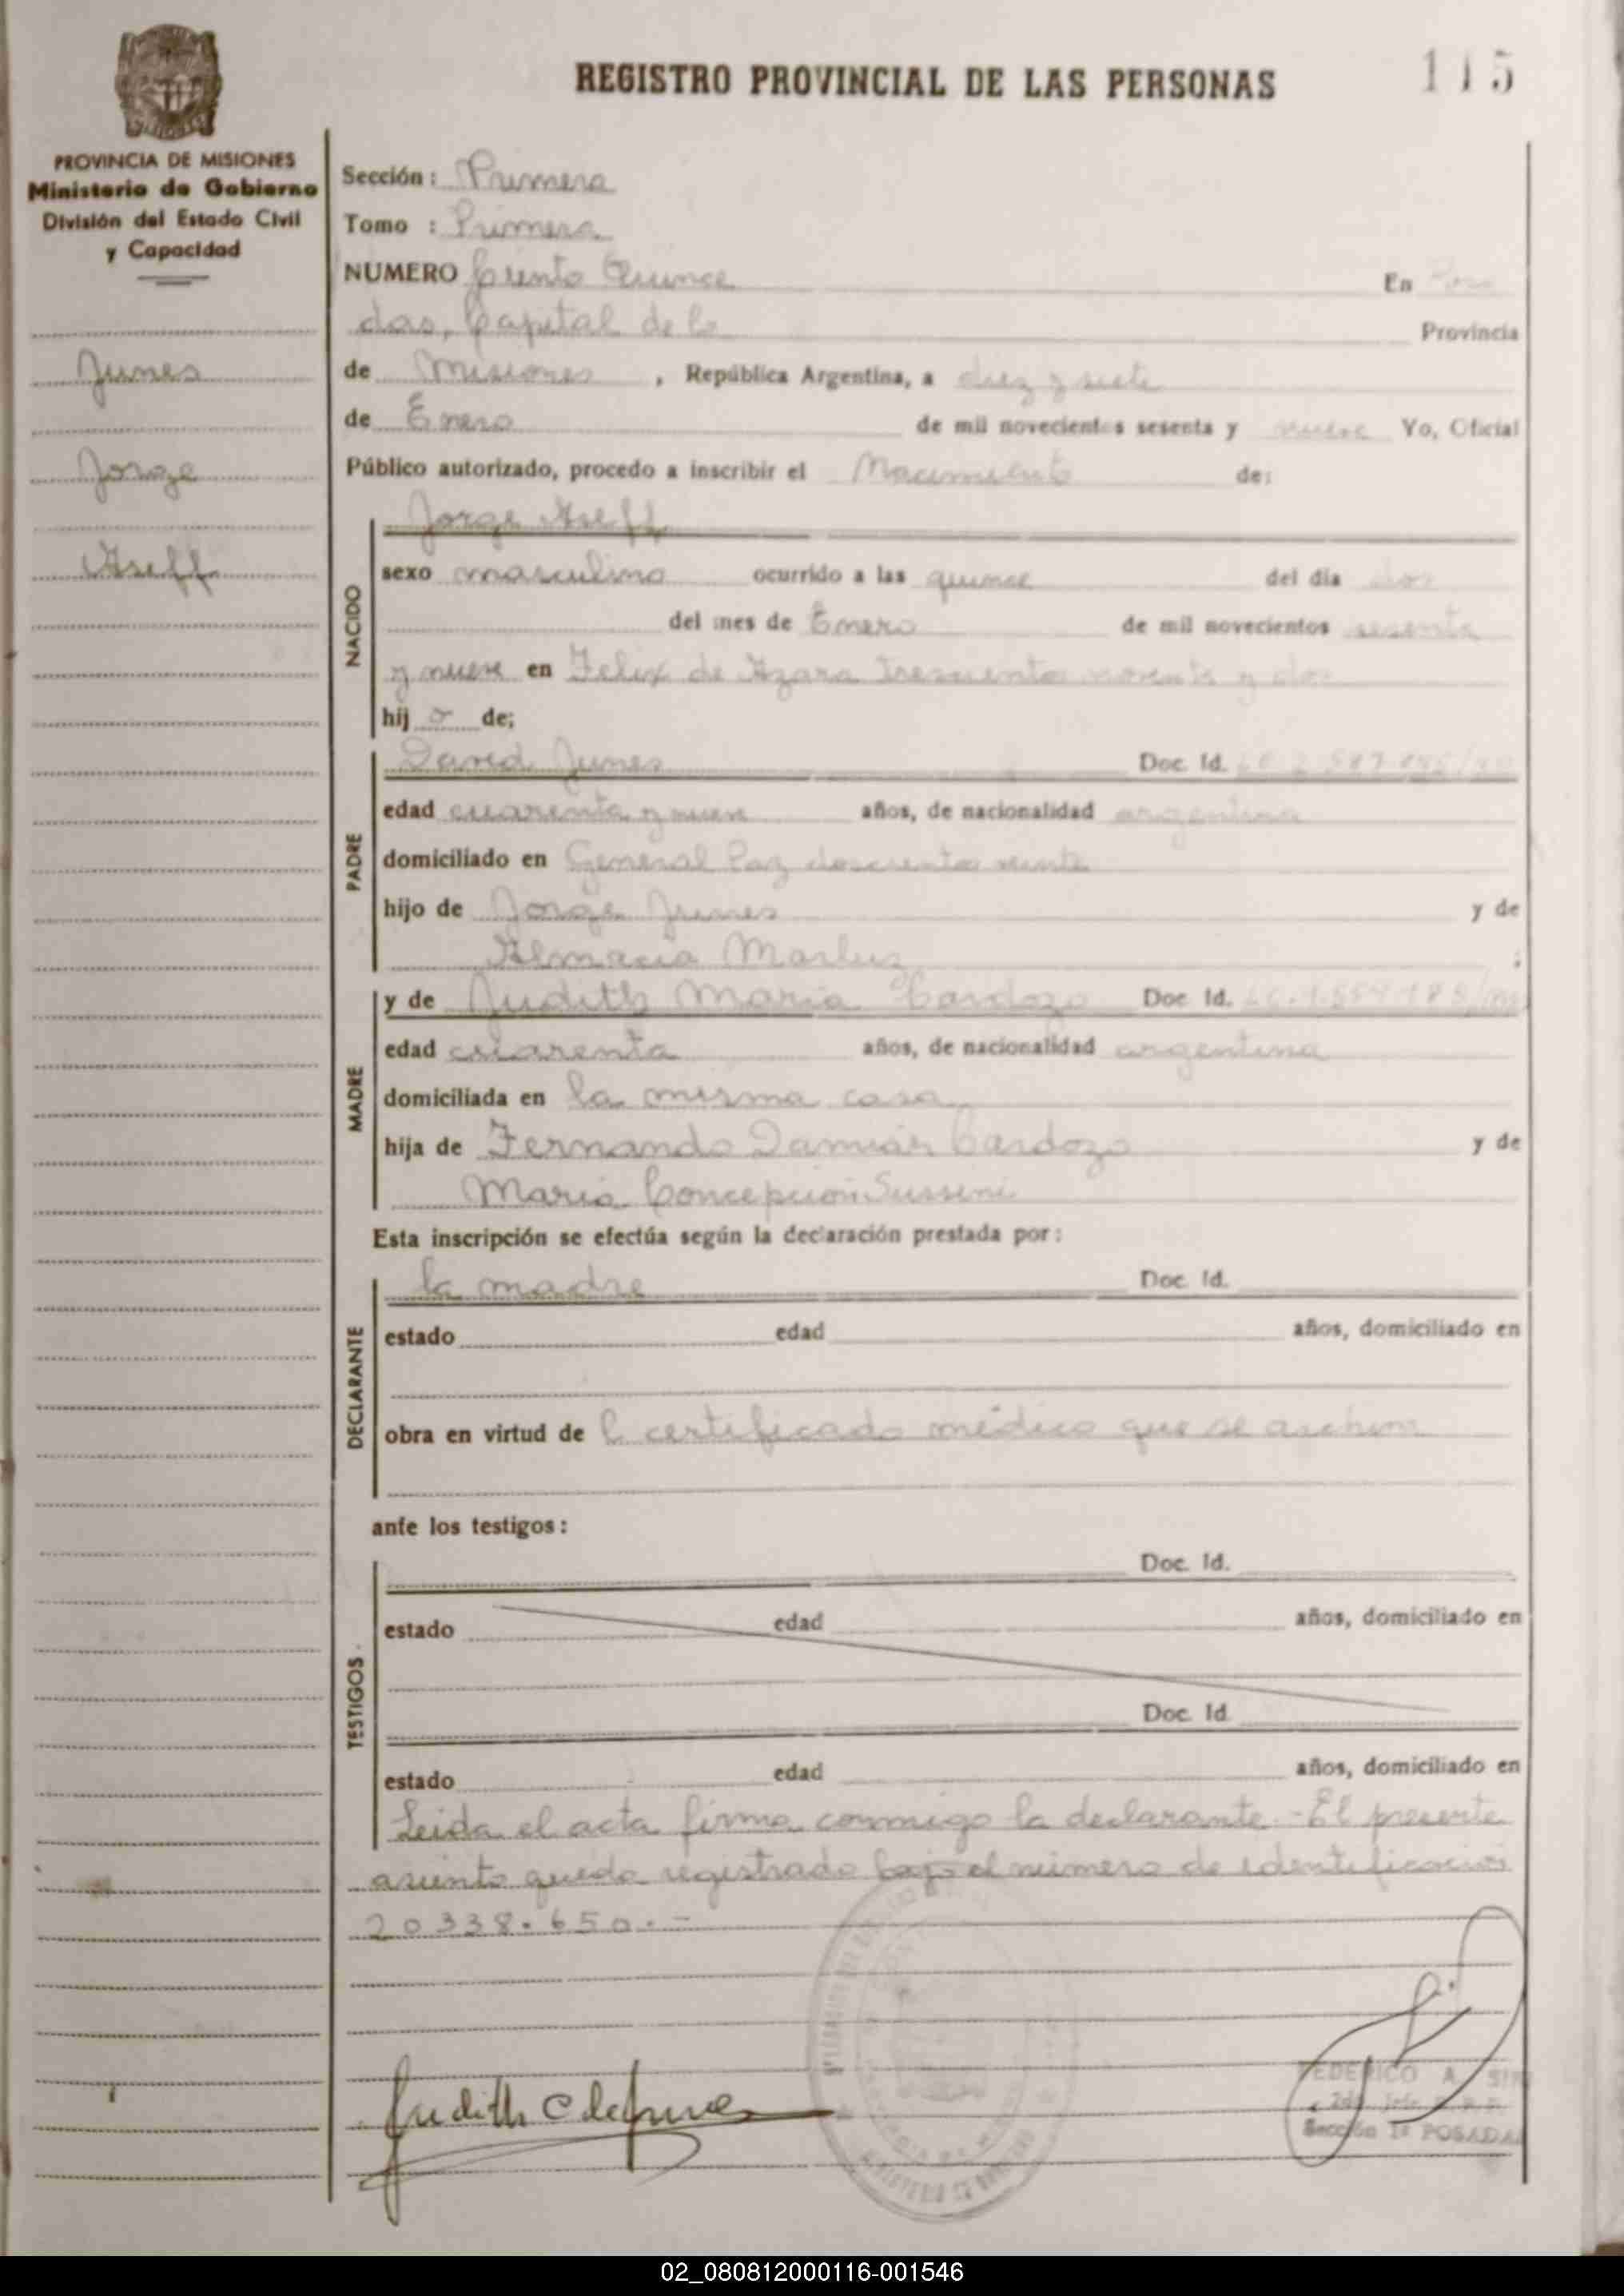 REGISTRO PROVINCIAL DE LAS PERSONAS
115
PROVINCIA DE MISIONES
Ministerio de Gobierno
División del Estado Civil
y Capacidad
Junes
Jorge
Aseff
Sección: Primera
Tomo : Primera
NUMERO Ciento Quince En Posa
das, Capital de la Provincia
de Misiones, República Argentina, a diez y siete
de Enero de mil novecientos sesenta y nueve Yo, Oficial
Público autorizado, procedo a inscribir el Nacimiento de:
NACIDO
Jorge Aseff
sexo masculino ocurrido a las quince del dia dos
del mes de Enero de mil novecientos sesenta
y nueve en Felix de Azara trescientos noventa y dos
hijo de;
PADRE
David Junes Doc. Id.
edad cuarenta y nueve años, de nacionalidad argentina
domiciliado en General Paz doscientos veinte
hijo de Jorge Junes y de
Marluz ;
MADRE
y de Judith Maria Cardozo Doc. Id.
edad cuarenta años, de nacionalidad argentina
domiciliada en la misma casa
hija de Fernando Damián Cardozo y de
Maria Concepción Susseni
Esta inscripción se efectúa según la declaración prestada por:
DECLARANTE
la madre Doc. Id.
estado edad años, domiciliado en
obra en virtud de l certificado médico que se archiva
ante los testigos:
TESTIGOS.
Doc. Id.
estado edad años, domiciliado en
Doc. Id
estado edad años, domiciliado en
Leida el acta firma conmigo la declarante.- El presente
asiento queda registrado bajo el número de identificación
20338.650.-
Judith C de Junes
FEDERICO A.
Sección 1ª POSADAS
02_080812000116-001546